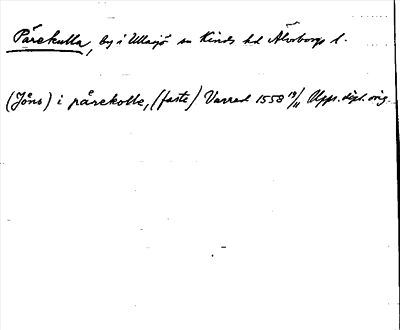 Pårekulla, by i Ullasjö sn Kinds hd Älvsborgs l.
(Jöns) i pårekolle, (faste) Varred 1558 19/11 Upps. dipl. orig.